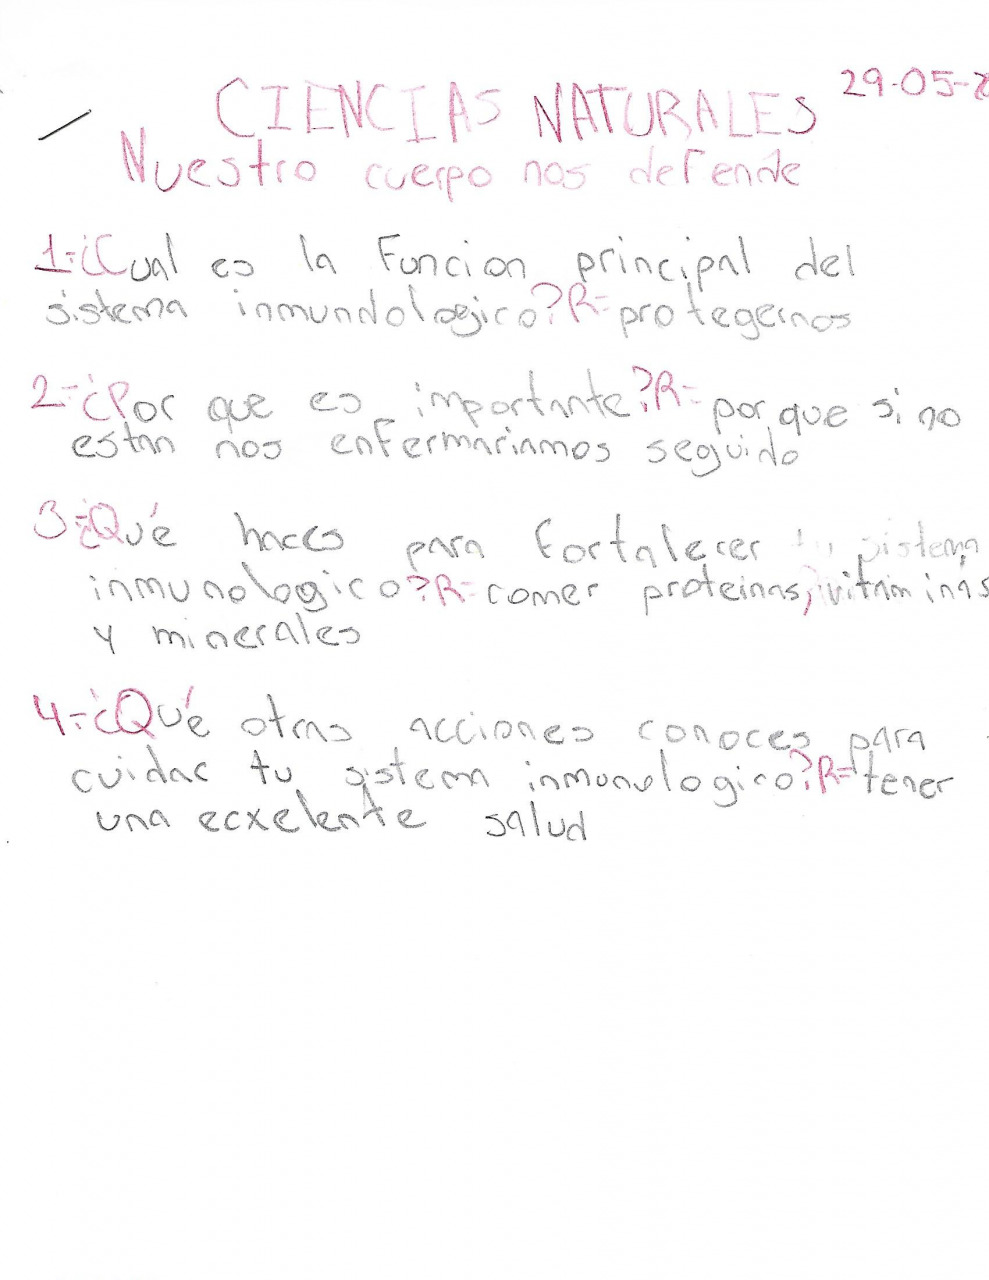 29-05-2
CIENCIAS NATURALES
Nuestro cuerpo nos defende
1-¿Cual es la Funcion principal del
sistema inmundologico?R=protegernos
2-¿Por que es importante?R=por que si no
estan nos enfermariamos seguido
3-¿Qué haces para fortalecer tu sistema
inmunologico?R=comer proteinas, vitaminas
y minerales
4-¿Qué otras acciones conoces para
cuidar tu sistema inmunologico?R=tener
una ecxelente salud